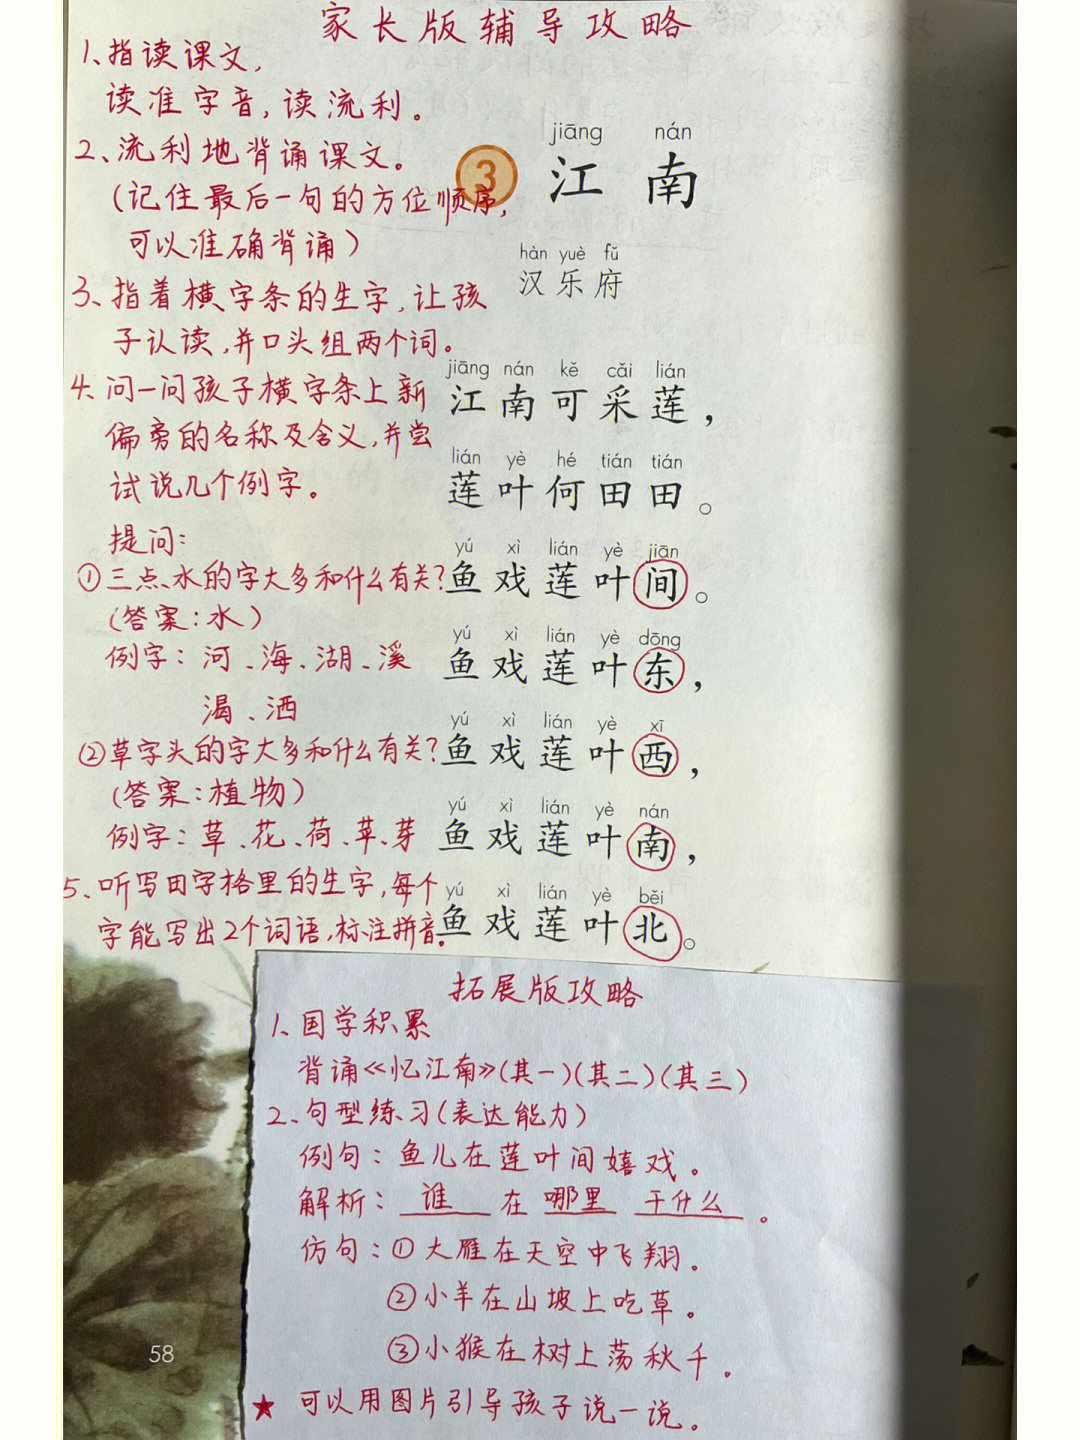 家长版辅导攻略
1、指读课文,
读准字音,读流利。
2、流利地背诵课文。
(记住最后一句的方位顺序,
可以准确背诵)
3、指着横字条的生字,让孩
子认读,并口头组两个词。
4、问一问孩子横字条上新
偏旁的名称及含义,并尝
试说几个例字。
提问:
①三点水的字大多和什么有关?
(答案:水)
例字:河、海、湖、溪
渴、洒
②草字头的字大多和什么有关?
(答案:植物)
例字:草、花、荷、苹、芽
5、听写田字格里的生字,每个
字能写出2个词语,标注拼音。
jiāng nán
3 江南
hàn yuè fǔ
汉乐府
jiāng nán kě cǎi lián
江南可采莲,
lián yè hé tián tián
莲叶何田田。
yú xì lián yè jiān
鱼戏莲叶间。
yú xì lián yè dōng
鱼戏莲叶东,
yú xì lián yè xī
鱼戏莲叶西,
yú xì lián yè nán
鱼戏莲叶南,
yú xì lián yè běi
鱼戏莲叶北。
拓展版攻略
1、国学积累
背诵《忆江南》(其一)(其二)(其三)
2、句型练习(表达能力)
例句:鱼儿在莲叶间嬉戏。
解析:谁在哪里干什么。
仿句:①大雁在天空中飞翔。
②小羊在山坡上吃草。
③小猴在树上荡秋千。
★可以用图片引导孩子说一说。
58